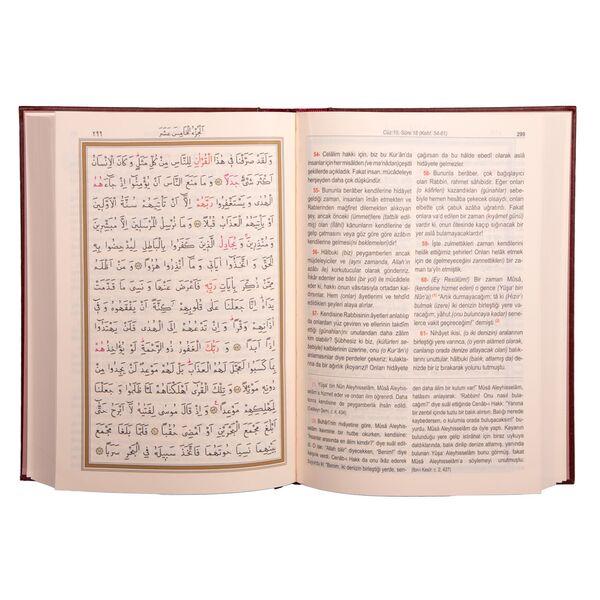 الجزء الخامس عشر
٢٩٩
وَلَقَدْ صَرَّفْنَا فِي هٰذَا الْقُرْاٰنِ لِلنَّاسِ مِنْ كُلِّ مَثَلٍ وَكَانَ الْاِنْسَانُ
اَكْثَرَ شَيْءٍ جَدَلًا وَمَا مَنَعَ النَّاسَ اَنْ يُؤْمِنُوا اِذْ جَاءَهُمُ
الْهُدٰى وَيَسْتَغْفِرُوا رَبَّهُمْ اِلَّا اَنْ تَأْتِيَهُمْ سُنَّةُ الْاَوَّلِينَ
اَوْ يَأْتِيَهُمُ الْعَذَابُ قُبُلًا وَمَا نُرْسِلُ الْمُرْسَلِينَ اِلَّا مُبَشِّرِينَ
وَمُنْذِرِينَ وَيُجَادِلُ الَّذِينَ كَفَرُوا بِالْبَاطِلِ لِيُدْحِضُوا بِهِ
الْحَقَّ وَاتَّخَذُوا اٰيَاتِي وَمَا اُنْذِرُوا هُزُوًا وَمَنْ اَظْلَمُ
مِمَّنْ ذُكِّرَ بِاٰيَاتِ رَبِّهِ فَاَعْرَضَ عَنْهَا وَنَسِيَ مَا قَدَّمَتْ
يَدَاهُ اِنَّا جَعَلْنَا عَلٰى قُلُوبِهِمْ اَكِنَّةً اَنْ يَفْقَهُوهُ وَفِي
اٰذَانِهِمْ وَقْرًا وَاِنْ تَدْعُهُمْ اِلَى الْهُدٰى فَلَنْ يَهْتَدُوا
اِذًا اَبَدًا وَرَبُّكَ الْغَفُورُ ذُو الرَّحْمَةِ لَوْ يُؤَاخِذُهُمْ
بِمَا كَسَبُوا لَعَجَّلَ لَهُمُ الْعَذَابَ بَلْ لَهُمْ مَوْعِدٌ لَنْ يَجِدُوا مِنْ
دُونِهِ مَوْئِلًا وَتِلْكَ الْقُرٰى اَهْلَكْنَاهُمْ لَمَّا ظَلَمُوا وَجَعَلْنَا
لِمَهْلِكِهِمْ مَوْعِدًا وَاِذْ قَالَ مُوسٰى لِفَتٰيهُ لَا اَبْرَحُ حَتّٰى
اَبْلُغَ مَجْمَعَ الْبَحْرَيْنِ اَوْ اَمْضِيَ حُقُبًا فَلَمَّا بَلَغَا مَجْمَعَ
بَيْنِهِمَا نَسِيَا حُوتَهُمَا فَاتَّخَذَ سَبِيلَهُ فِي الْبَحْرِ سَرَبًا
Cüz:15, Sûre:18 (Kehf: 54-61)
299
54- Celâlim hakkı için, biz bu Kur'ân'da
insanlar için her misâlden (ve ma'nâdan) çeşitli
şekillerde açıkladık. Fakat insan, mücâdeleye
herşeyden daha çok düşkündür.
55- Bununla berâber kendilerine hidâyet
geldiği zaman, insanları îmân etmekten ve
Rablerinden mağfiret dilemekten alıkoyan
şey; ancak önceki (ümmet)lere (tatbîk edil-
miş) olan (ilâhî) kânunların kendilerine de
gelip çatmasını veya göz göre göre azâbın
kendilerine gelmesini(n beklemeleri)dir!
56- Hâlbuki (biz) peygamberleri ancak
müjdeleyiciler ve (aynı zamanda, Allah'ın
azâbı ile) korkutucular olarak göndeririz.
İnkâr edenler ise bâtıl (bir yol) ile mücâdele
eder ki, hakkı onun vâsıtasıyla ortadan kal-
dırsınlar. Hem (onlar) âyetlerimi ve tehdîd
edildikleri şeyleri alay konusu edindiler.
57- Kendisine Rabbisinin âyetleri anlatılıp
da onlardan yüz çeviren ve ellerinin takdîm
ettiği (günahları)nı unutandan daha zâlim
kimdir? Şübhesiz ki biz, (küfürleri sebebiy-
le) kalblerinin üzerine, onu (o Kur'ân'ı)
anlamasınlar diye perdeler çekeriz; kulakla-
rına da bir ağırlık (koyarız)! Onları hidâyete
çağırsan da bu hâlde ebedî olarak aslâ
hidâyete gelmezler.
58- Bununla berâber, çok bağışlayıcı
olan Rabbin, rahmet sâhibidir. Eğer onları
(o kâfirleri) kazandıkları (günahlar) sebe-
biyle cezâlandıracak olsaydı, elbette onla-
rı çabuk çabuk azâba uğratırdı. Fakat
onlara va'd edilen bir (kıyâmet) günü
vardır ki, onun ötesinde kaçıp sığınacak bir
yer aslâ bulamayacaklardır.
59- İşte zulmettikleri zaman kendilerini
helâk ettiğimiz şehirler! Onları helâk etmek
için de (gelmeyeceğini zannettikleri) bir za-
man ta'yîn etmiştik.
60- (Ey Resûlüm!) Bir zaman Mûsâ,
(kendisine hizmet eden) o genci (Yûşa' bin
Nûn'a): "Artık durmayacağım; tâ ki (Hızır'ı
bulmak üzere) iki denizin birleştiği yere vara-
cağım, yâhud (onu buluncaya kadar) sene-
lerce vakit geçireceğim!" demişti.
61- Nihâyet ikisi, (o iki denizin) aralarının
birleştiği yere varınca, (o yerin alâmeti olarak,
canlanıp orada denize atlayacak olan) balıkla-
rını unuttular; hâlbuki (balık) atlamış da deniz-
de iz bırakarak yolunu tutmuştu.
(1) Yûşa' bin Nûn Aleyhisselâm, Mûsâ Aleyhis-
selâm'a hizmet eder ve ondan ilim öğrenirdi. Daha
sonra, kendisine de peygamberlik ihsân edildi.
(2) Buhârî'nin rivâyetine göre, Mûsâ Aleyhis-
selâm kavmine bir hutbe okurken, kendisine
insanlar arasında en âlim kimdir?" diye soruldu.
O da: "Allah bilir" diyecekken, "Benim!" diye
cevab verdi. Cenâb-ı Hakk da onu îkāz ederek
ona, "Benim, iki denizin birleştiği yerde, sen-
den daha âlim bir kulum var!" dedi. Mûsâ Aleyhisselâm,
taleb ederek: "Rabbim! Onu nasıl
bulabilirim?" diye sorunca Cenâb-ı Hakk: "Yanına
bir zenbil içinde tuzlu bir balık alırsın. Balığı nerede
kaybedersen, o kulumu orada bulacaksın!" buyurdu.
Mûsâ Aleyhisselâm da öyle yaptı. Kayanın
bulunduğu yere gelip istirâhat için biraz uykuya
daldıklarında, balık canlanıp denize atladı. Yûşa'
Aleyhisselâm bunu görmüş, fakat
Mûsâ Aleyhisselâm'a söylemeyi unutmuştu.
(İbn-i Kesîr, c. 2, 427)